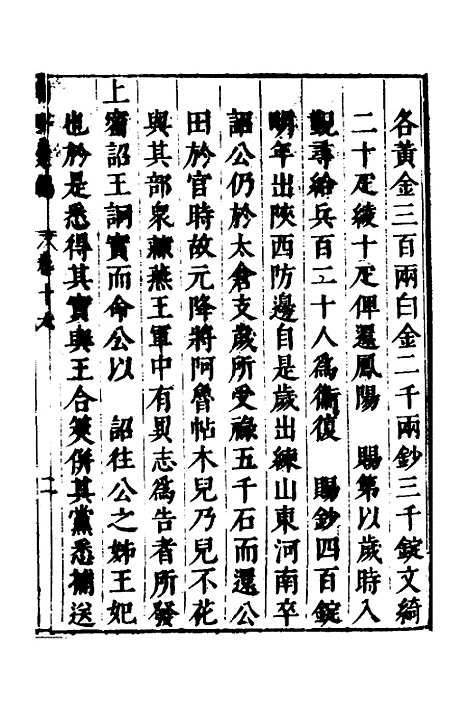 各黃金三百兩白金二千兩鈔三千錠文綺
二十疋綾十疋俾還鳳陽　賜第以歲時入
覲尋給兵百二十人為衛復　賜鈔四百錠
明年出陝西防邊自是歲出練山東河南卒
詔公仍於太倉支歲所受祿五千石而還公
田於官時故元降將阿魯帖木兒乃兒不花
與其部衆隸燕王軍中有異志為告者所發
上密詔王詗實而命公以　詔往公之姊王妃
也於是悉得其實與王合筴併其黨悉捕送
卷十九　二